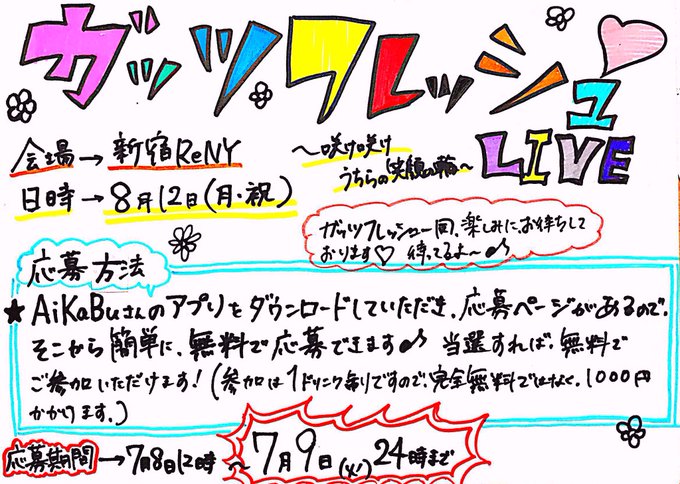 ガッツフレッシュ
LIVE
会場→新宿ReNY
日時→8月12日(月・祝)
〜咲け咲け
うちらの笑顔の輪〜
ガッツフレッシュ一同、楽しみにお待ちして
おります♡ 待ってるよ〜♪
応募方法
★AiKaBuさんのアプリをダウンロードしていただき、応募ページがあるので、
そこから簡単に、無料で応募できます♪ 当選すれば、無料で
ご参加いただけます!(参加は1ドリンク制ですので、完全無料ではなく、1000円
かかります。)
応募期間→7月8日12時〜7月9日(火)24時まで